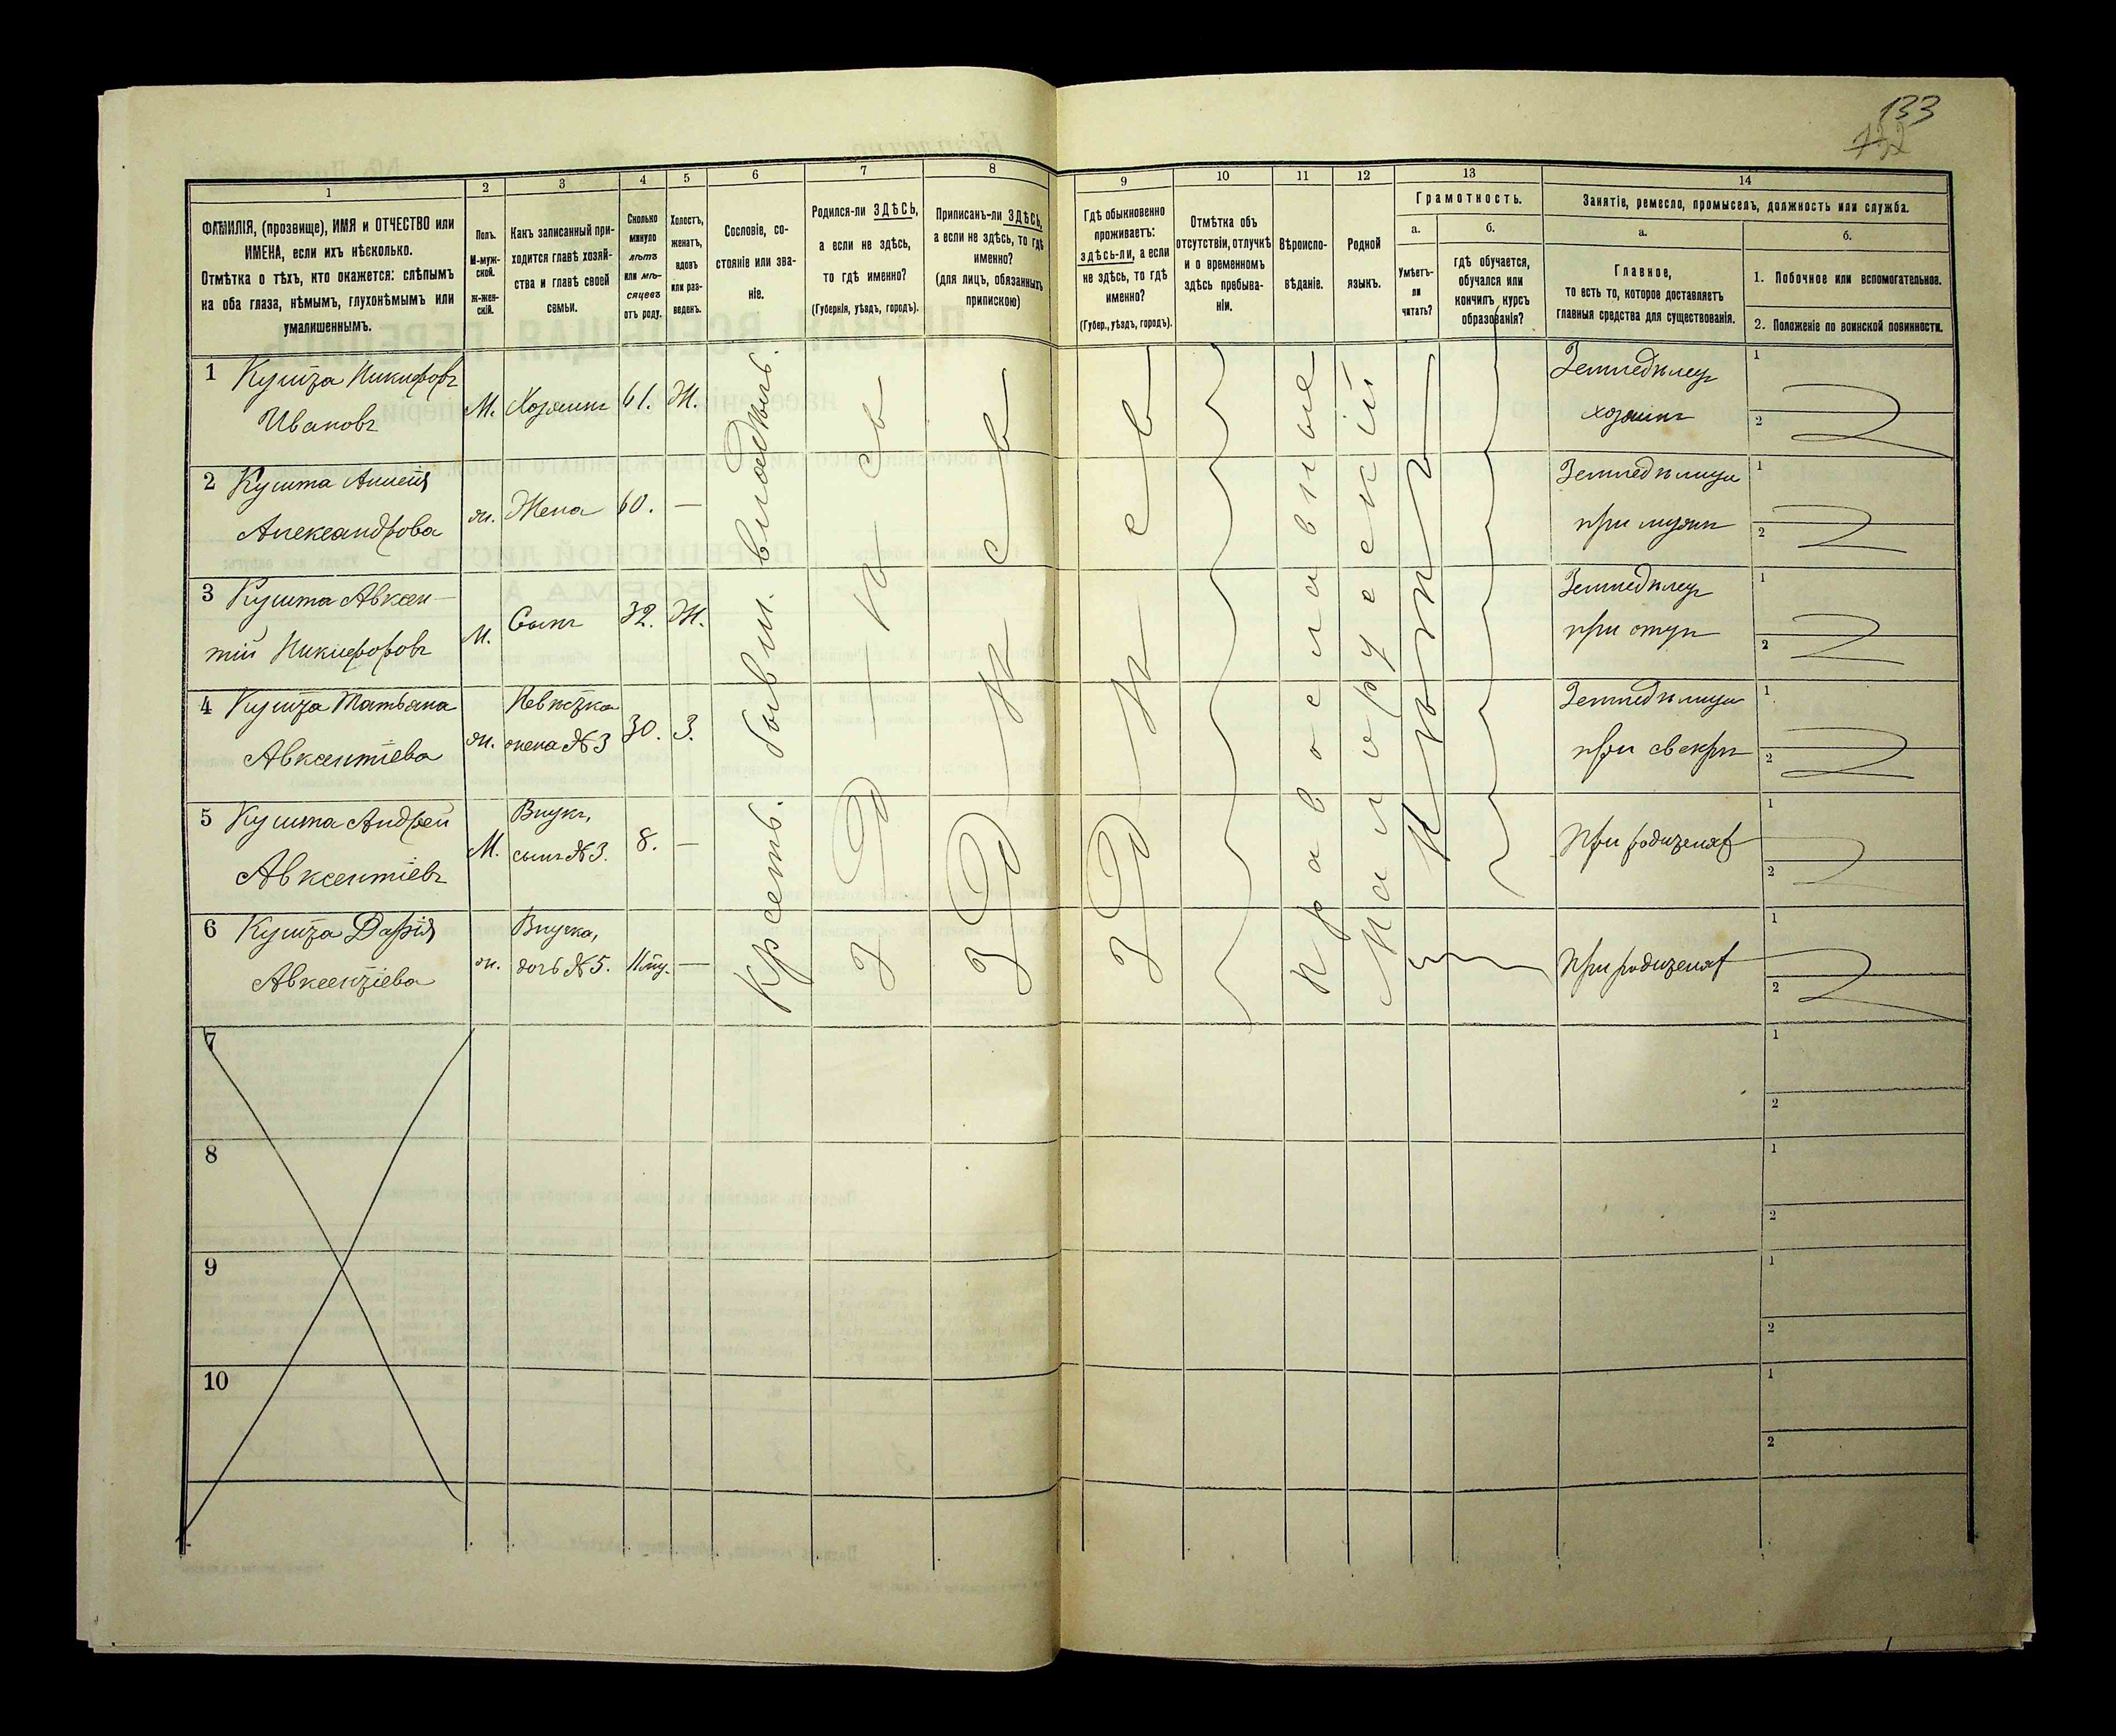 133
132
1 2 3 4 5 6 7 8 9 10 11 12 13 14
ФАМИЛІЯ, (прозвище), ИМЯ и ОТЧЕСТВО или
ИМЕНА, если ихъ нѣсколько.
Отмѣтка о тѣхъ, кто окажется: слѣпымъ
на оба глаза, нѣмымъ, глухонѣмымъ или
умалишеннымъ.
Полъ.
М-муж-
ской.
ж-жен-
скій.
Какъ записанный при-
ходится главѣ хозяй-
ства и главѣ своей
семьи.
Сколько
минуло
лѣтъ
или мѣ-
сяцевъ
отъ роду.
Холостъ,
женатъ,
вдовъ
или раз-
веденъ.
Сословіе, со-
стояніе или зва-
ніе.
Родился-ли ЗДѢСЬ,
а если не здѣсь,
то гдѣ именно?
(Губернія, уѣздъ, городъ).
Приписанъ-ли ЗДѢСЬ,
а если не здѣсь, то гдѣ
именно?
(для лицъ, обязанныхъ
припискою)
Гдѣ обыкновенно
проживаетъ:
здѣсь-ли, а если
не здѣсь, то гдѣ
именно?
(Губер., уѣздъ, городъ).
Отмѣтка объ
отсутствіи, отлучкѣ
и о временномъ
здѣсь пребыва-
ніи.
Вѣроиспо-
вѣданіе.
Родной
языкъ.
Грамотность.
а.
Умѣетъ-
ли
читать?
б.
гдѣ обучается,
обучался или
кончилъ курсъ
образованія?
Занятіе, ремесло, промыселъ, должность или служба.
а.
Главное,
то есть то, которое доставляетъ
главныя средства для существованія.
б.
1. Побочное или вспомогательное.
2. Положеніе по воинской повинности.
1 Кушта Никифоръ
Ивановъ
М. Хозяинъ 61. Ж.
Земледѣлец
хозяинъ
1
2
2 Кушта Анненія
Александрова
ж. Жена 60. —
Земледѣлица
при мужѣ
1
2
3 Кушта Авксен-
тій Никифоровъ
М. Сынъ 32. Ж.
Земледѣлец
при отцѣ
1
2
4 Кушта Татьяна
Авксентіева
ж. Невѣстка
жена №3 30. З.
Земледѣлица
при свекрѣ
1
2
5 Кушта Андрей
Авксентіевъ
М. Внукъ,
сынъ №3. 8. —
При родителях
1
2
6 Кушта Дарія
Авксентіева
ж. Внучка,
дочь №5. 11 мц. —
При родителях
1
2
Крсетъ. бывш. владѣтъ.
Здѣсь
Здѣсь
Здѣсь
Православное
Малорусскій
Нѣтъ
7
1
2
8
1
2
9
1
2
10
1
2